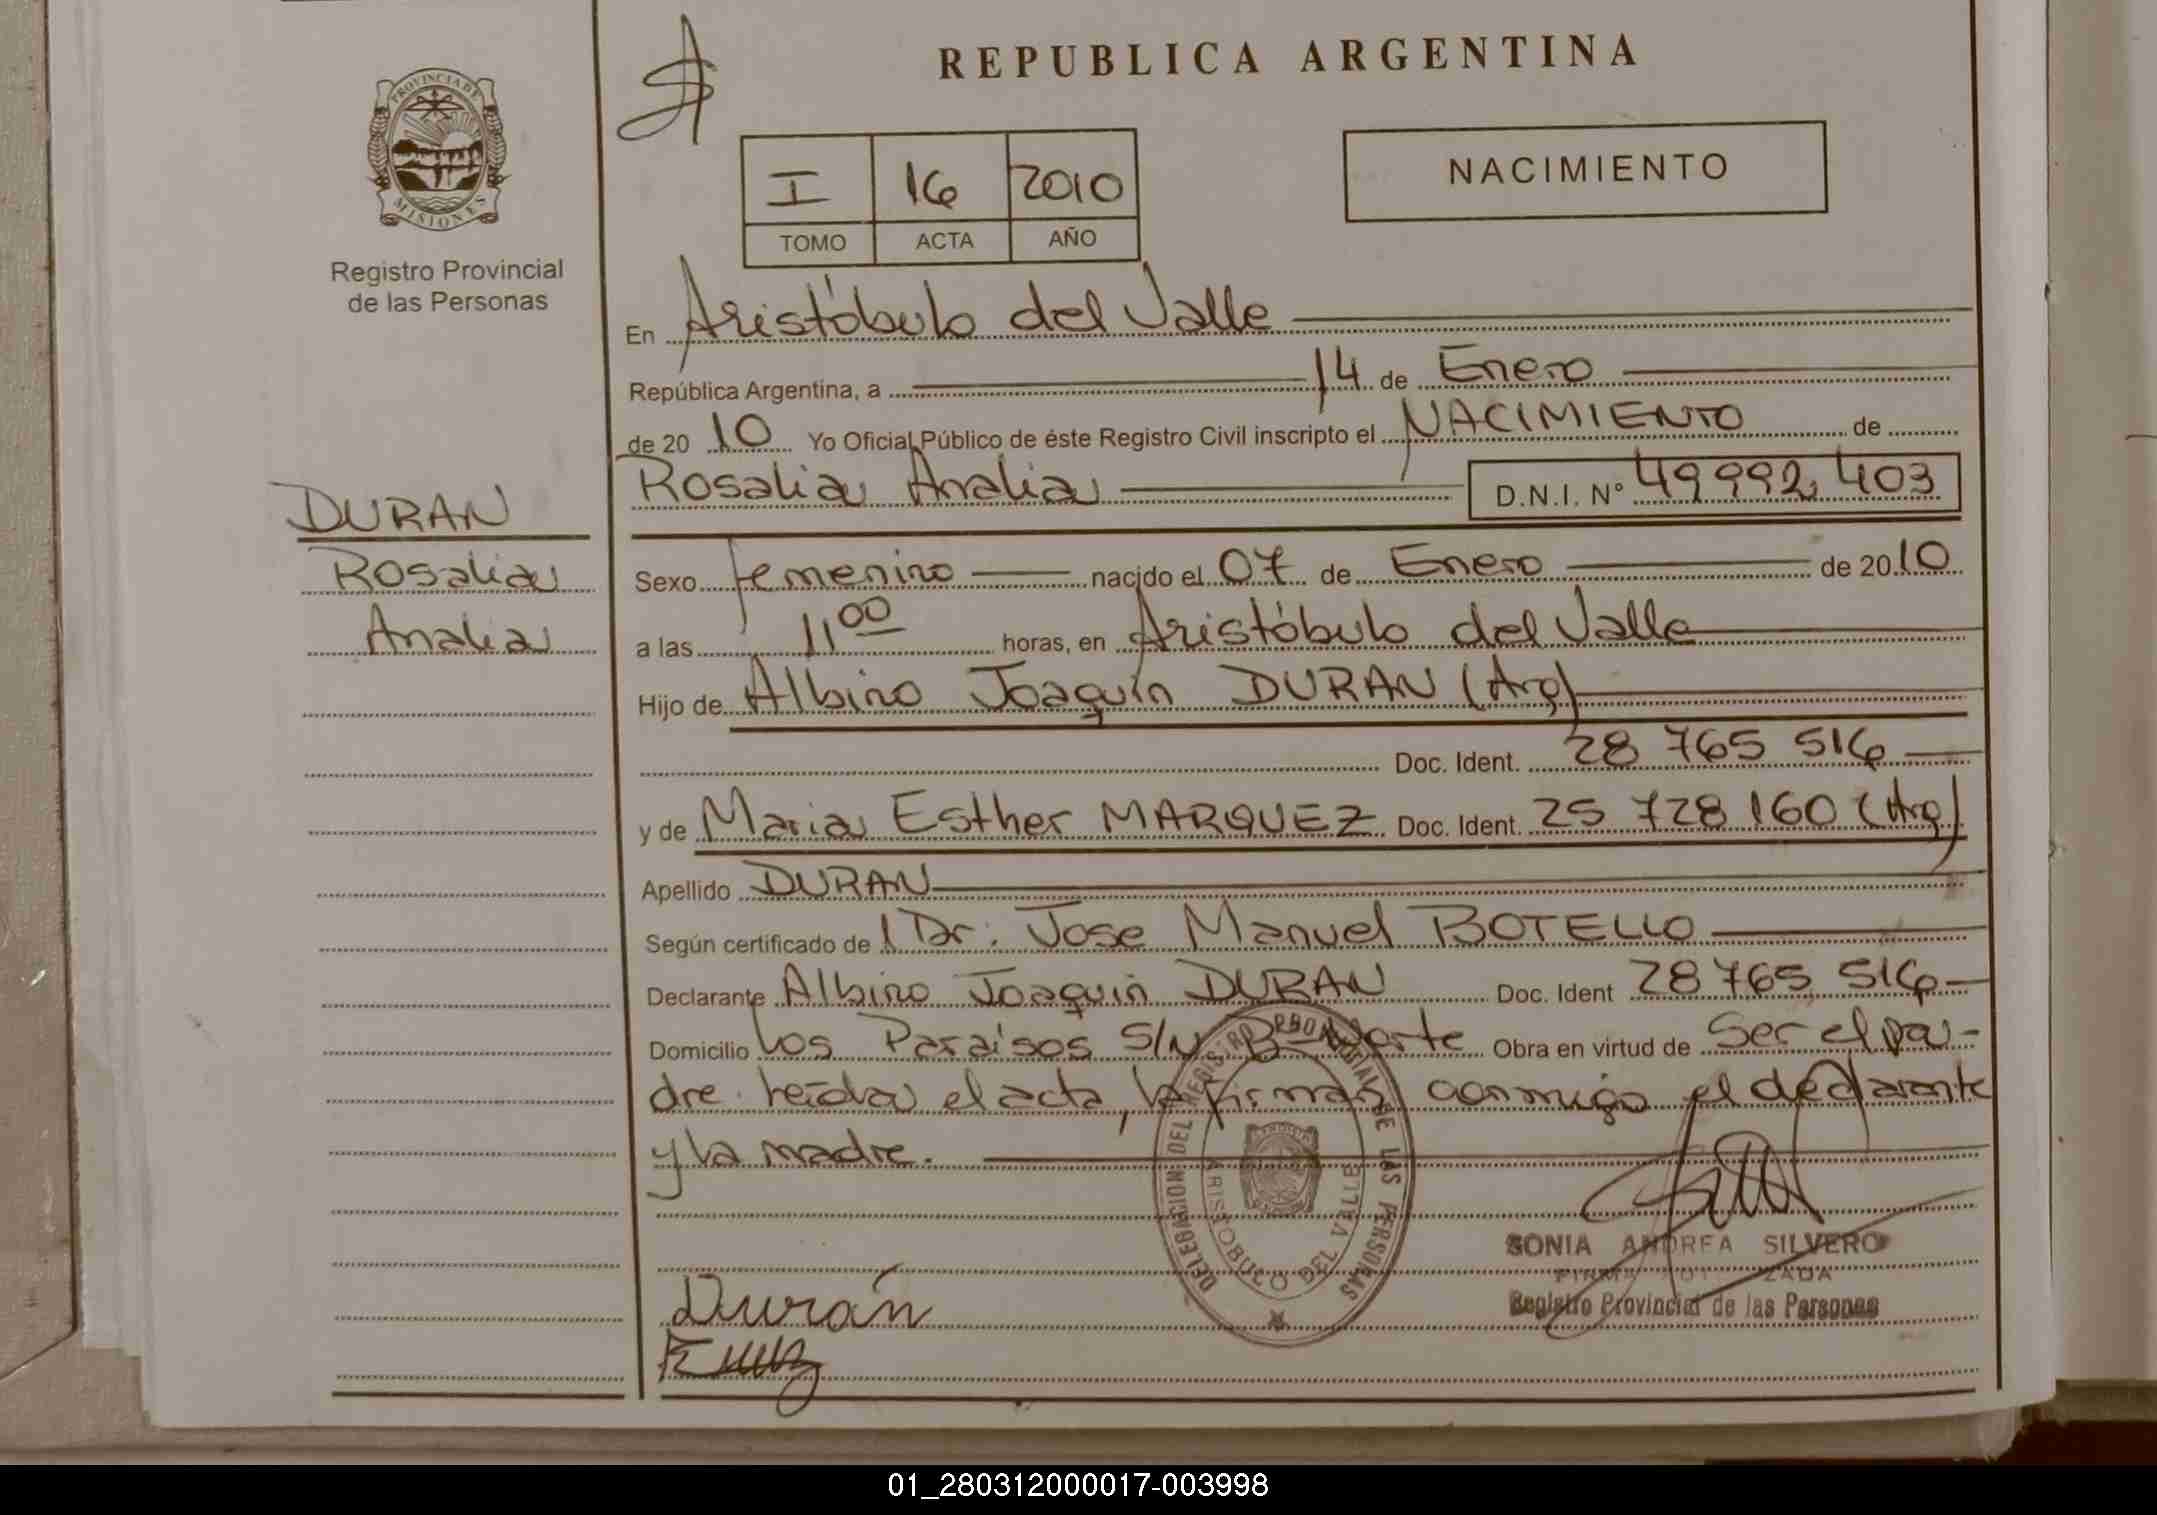 REPUBLICA ARGENTINA
PROVINCIA DE
MISIONES
Registro Provincial
de las Personas
I 16 2010
TOMO ACTA AÑO
NACIMIENTO
En Aristóbulo del Valle
República Argentina, a 14 de Enero
de 20 10 Yo Oficial Público de éste Registro Civil inscripto el NACIMIENTO de
Rosalia Analia D.N.I. Nº 49 992 403
DURAN
Rosalia
Analia
Sexo femenino nacido el 07 de Enero de 2010
a las 11 00 horas, en Aristóbulo del Valle
Hijo de Albino Joaquín DURAN (Arg)
Doc. Ident. 28 765 516
y de Maria Esther MARQUEZ Doc. Ident. 25 728 160 (Arg)
Apellido DURAN
Según certificado de l Dr. Jose Manuel BOTELLO
Declarante Albino Joaquin DURAN Doc. Ident 28 765 516
Domicilio Los Paraísos S/N Bº Norte Obra en virtud de Ser el pa-
dre. leída el acta, la firman conmigo el declarante
y la madre.
DELEGACION DEL REGISTRO PROVINCIAL DE LAS PERSONAS
ARISTOBULO DEL VALLE
SONIA ANDREA SILVERO
FIRMA AUTORIZADA
Registro Provincial de las Personas
Durán
01_280312000017-003998